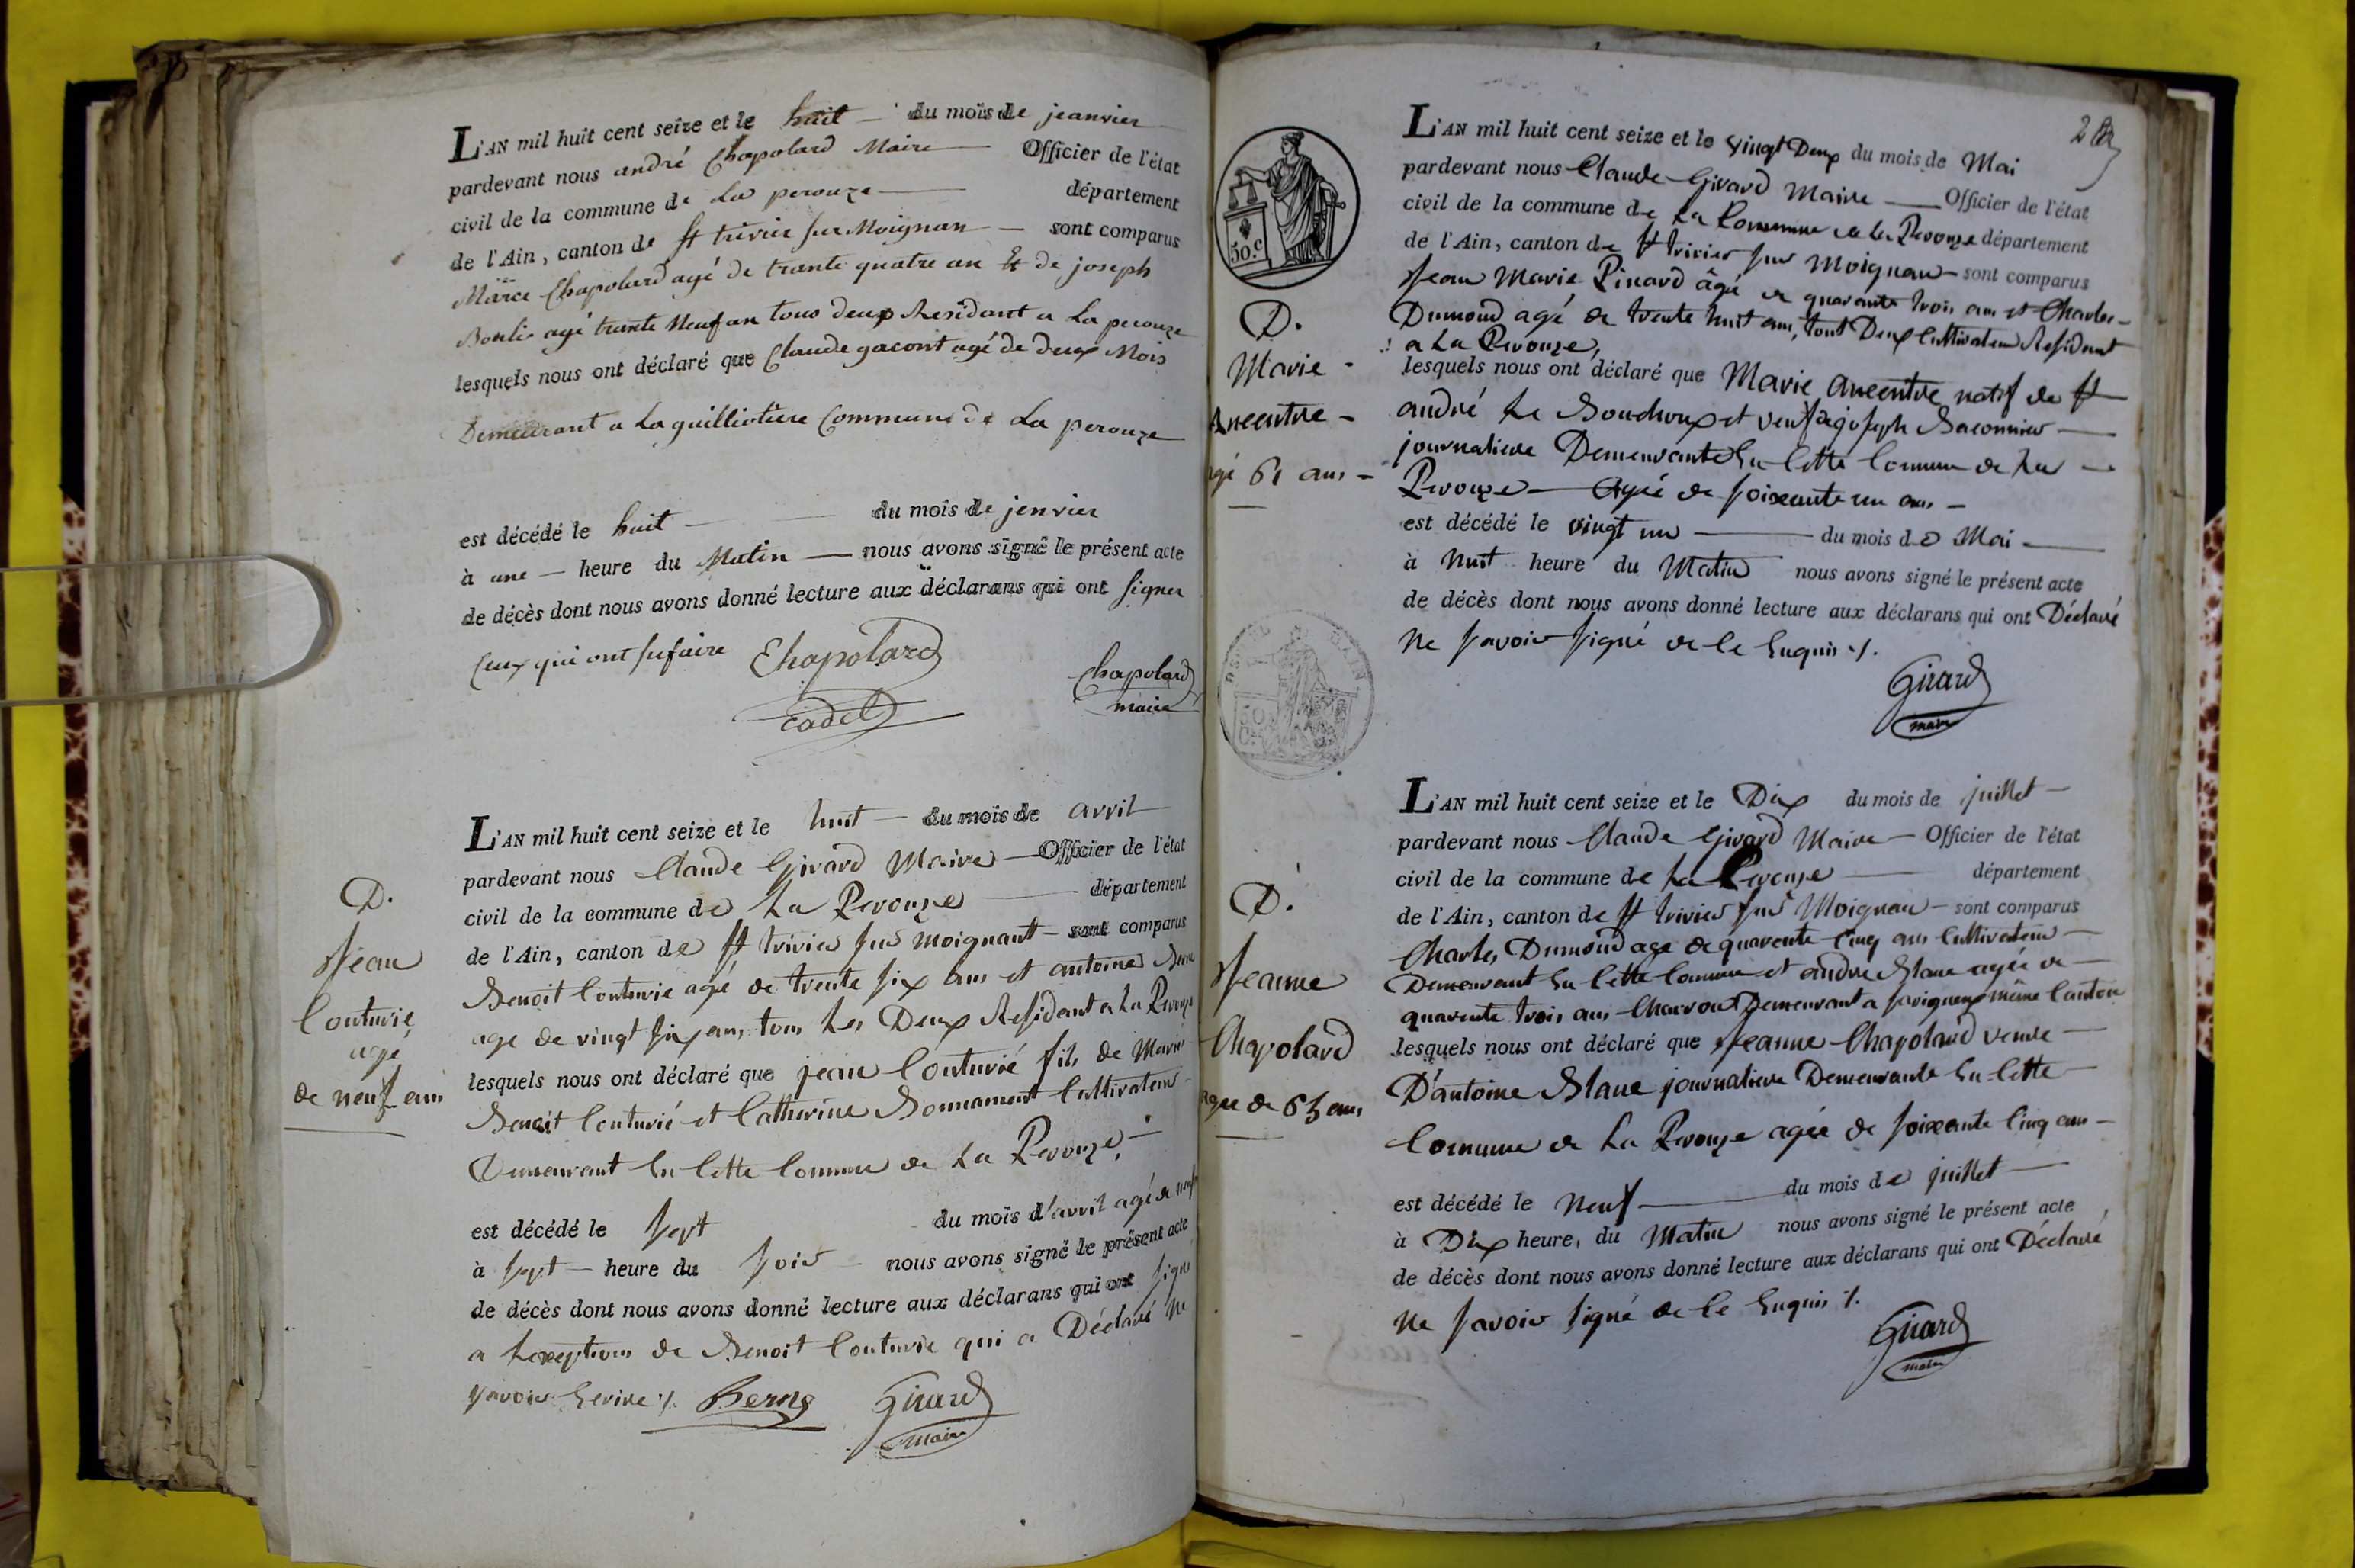 L'AN mil huit cent seize et le huit du mois de jeanvier
pardevant nous andré Chapolard Maire Officier de l'état
civil de la commune de La perouze département
de l'Ain, canton de st trivier sur Moignan sont comparus
Chapolard agé de trante quatre an Et de joseph
agé trante Neuf an tous deux Residant a La perouze
lesquels nous ont déclaré que Claude gacont agé de deux Mois
Demeurant a La guilliotiere Commune de La perouze
est décédé le huit du mois de jenvier
à une heure du Matin nous avons signé le présent acte
de décès dont nous avons donné lecture aux déclarans qui ont signer
Ceux qui ont su faire Chapolard
cadet
Chapolard
maire
D.
Jean
Couturié
agé
de neuf ans
L'AN mil huit cent seize et le huit du mois de avril
pardevant nous Claude Girard Maire Officier de l'état
civil de la commune de La Perouze département
de l'Ain, canton de st trivier sur moignant sont comparus
Benoit Couturié agé de trente six ans et antoine
age de vingt six ans, tous Les Deux Résidant a La Perouze
lesquels nous ont déclaré que jean Couturié fils de Marie
Benoit Couturié et Catherine Bonnament Cultivateur
Demeurant En Cette Commune de La Perouze,
est décédé le sept du mois d'avril agé de neuf
à sept heure du soir nous avons signé le présent acte
de décès dont nous avons donné lecture aux déclarans qui ont signé
a Lexeption de Benoit Couturié qui a Déclaré Ne
savoir Ecrire ·/. Berne Girard
maire
2
50.C
D.
Marie
Ancentre
agé 61 ans
L'AN mil huit cent seize et le vingt Deux du mois de Mai
pardevant nous Claude Girard Maire Officier de l'état
civil de la commune de La Commune de La Perouze département
de l'Ain, canton de st trivier sur Moignan sont comparus
Jean Marie Pinard âgé de quarante trois ans et Charles
Dumond agé de trente huit ans, tout Deux Cultivateur Résidant
a La Perouze,
lesquels nous ont déclaré que Marie Ancentre natif de st
andré Le Bouchoux et veuf de joseph Baconnier
journaliere Demeurante En Cette Commune de La
Perouze Agée de soixante un ans
est décédé le vingt un du mois de Mai
à huit heure du Matin nous avons signé le présent acte
de décès dont nous avons donné lecture aux déclarans qui ont Déclaré
Ne savoir signé de Ce Enquis ·/.
Girard
maire
D.
Jeanne
Chapolard
agée de 65 ans
L'AN mil huit cent seize et le Dix du mois de juillet
pardevant nous Claude Girard Maire Officier de l'état
civil de la commune de La Perouze département
de l'Ain, canton de st trivier sur Moignan sont comparus
Charles Dumond age de quarente Cinq ans Cultivateur
Demeurant En Cette Commune et andre Blanc agée de
quarente trois ans Charron Demeurant a savigneux même Canton
lesquels nous ont déclaré que Jeanne Chapolard veuve
D'antoine Blanc journaliere Demeurante En Cette
Commune de La Perouze agée de soixante Cinq ans
est décédé le Neuf du mois de juillet
à Dix heure, du Matin nous avons signé le présent acte
de décès dont nous avons donné lecture aux déclarans qui ont Déclaré
Ne savoir signé de Ce Enquis ·/.
Girard
maire